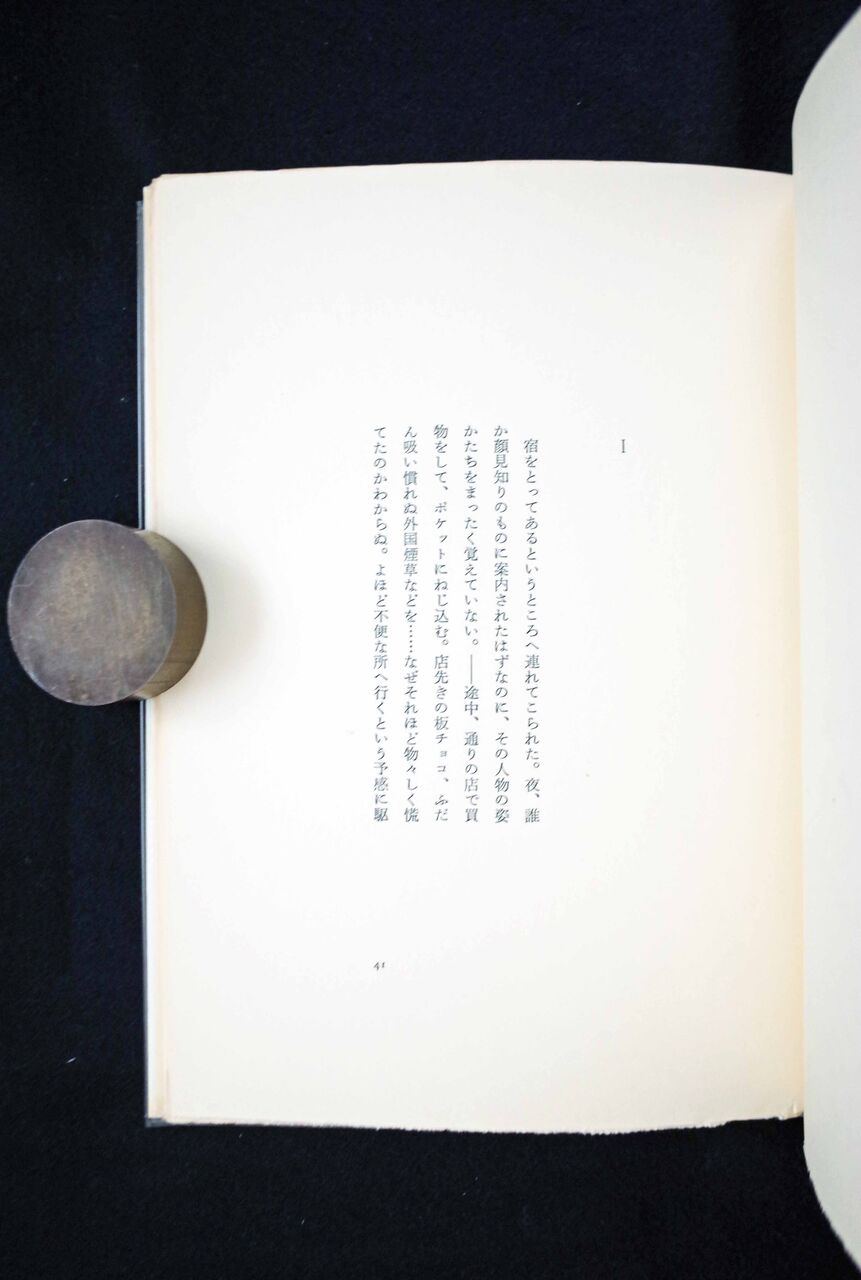 I
宿をとってあるというところへ連れてこられた。夜、誰
か顔見知りのものに案内されたはずなのに、その人物の姿
かたちをまったく覚えていない。――途中、通りの店で買
物をして、ポケットにねじ込む。店先きの板チョコ、ふだ
ん吸い慣れぬ外国煙草などを……なぜそれほど物々しく慌
てたのかわからぬ。よほど不便な所へ行くという予感に駆
41